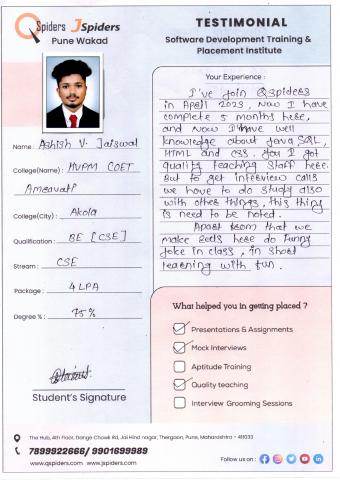 QSpiders JSpiders
Pune Wakad
TESTIMONIAL
Software Development Training &
Placement Institute
Name : Ashish V. Jaiswal
College(Name) : HVPM COET
Amravati
College(City) : Akola
Qualification : BE [CSE]
Stream : CSE
Package : 4 LPA
Degree % : 75 %
Student's Signature
Your Experience :
I've join Qspiders
in April 2023, Now I have
complete 5 months here,
and now I have well
knowledge about Java SQL,
HTML and CSS. You I got
quality teaching staff here.
But to get interview calls
we have to do study also
with other things, this thing
is need to be noted.
Apart from that we
make Reels here do funny
joke in class, in short
learning with fun.
What helped you in getting placed ?
Presentations & Assignments
Mock Interviews
Aptitude Training
Quality teaching
Interview Grooming Sessions
The Hub, 4th Floor, Dange Chowk Rd, Jai Hind nagar, Thergaon, Pune, Maharashtra - 411033
7899922666/ 9901699989
www.qspiders.com www.jspiders.com
Follow us on :